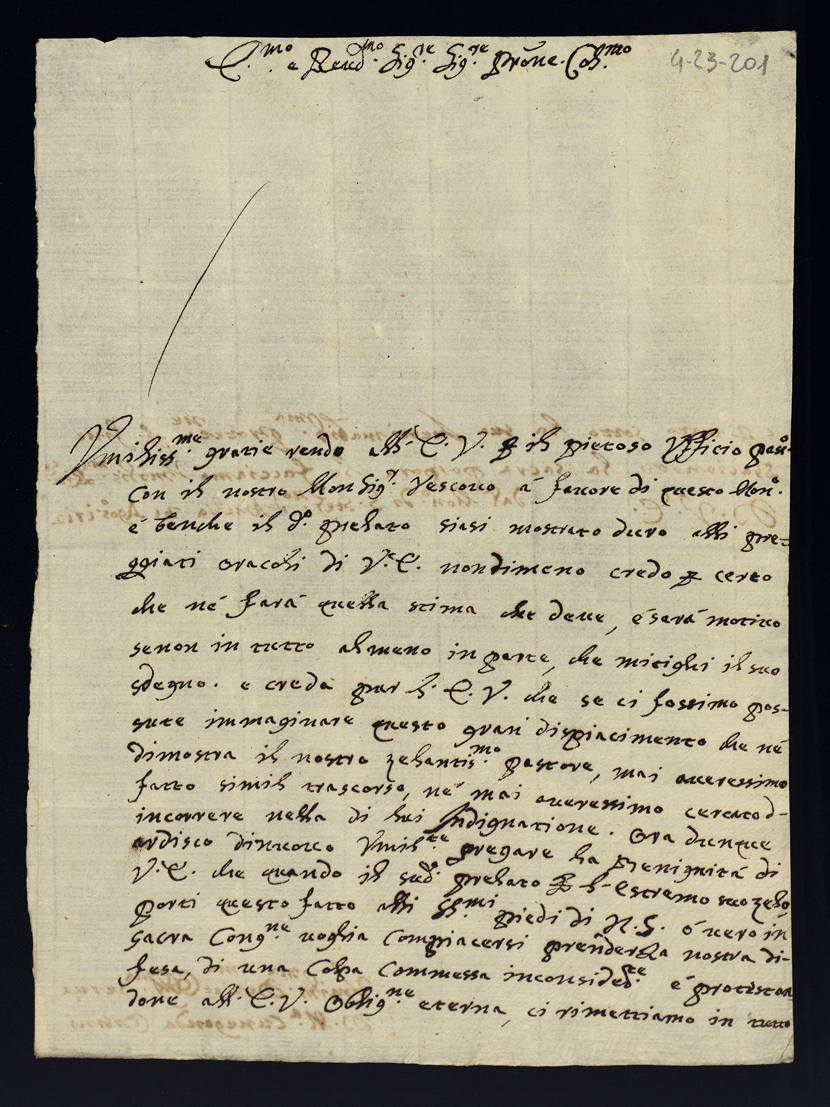 E.mo e Reud.mo Sig.re Sig.re Prōne. Col.mo
4-23-201
Vmiliss.me gratie rendo all' E. V. p il pietoso Vfficio pas.o
con il nostro Monsig.r Vescouo á fauore di questo Mon.o
é benche il d.o prelato siasi mostrato duro alli pre=
ggiati oracoli di V. E. nondimeno credo p certo
che né fará quella stima che deue, é sará motiuo
senon in tutto al meno in parte, che mitighi il suo
sdegno. e creda pur l' E. V. che se ci fossimo pos-
sute immaginare questo gran dispiacimento che né
dimostra il nostro zelantis.mo Pastore, mai aueressimo
fatto simil trascorso, né mai aueressimo cercato d-
incorrere nella di lui Indignatione. Ora dunque
ardisco dinuouo Vmil.te pregare la Benignitá di
V. E. che quando il sud.o prelato p l' estremo suo zelo
porti questo fatto alli SS.mi piedi di N. S. ó uero in
sacra Cong.ne uoglia Compiacersi prenderla nostra di-
fesa, di una Colpa Commessa inconsided.te é protestan
done all' E. V. Oblig.ne eterna, ci rimettiamo in tutto